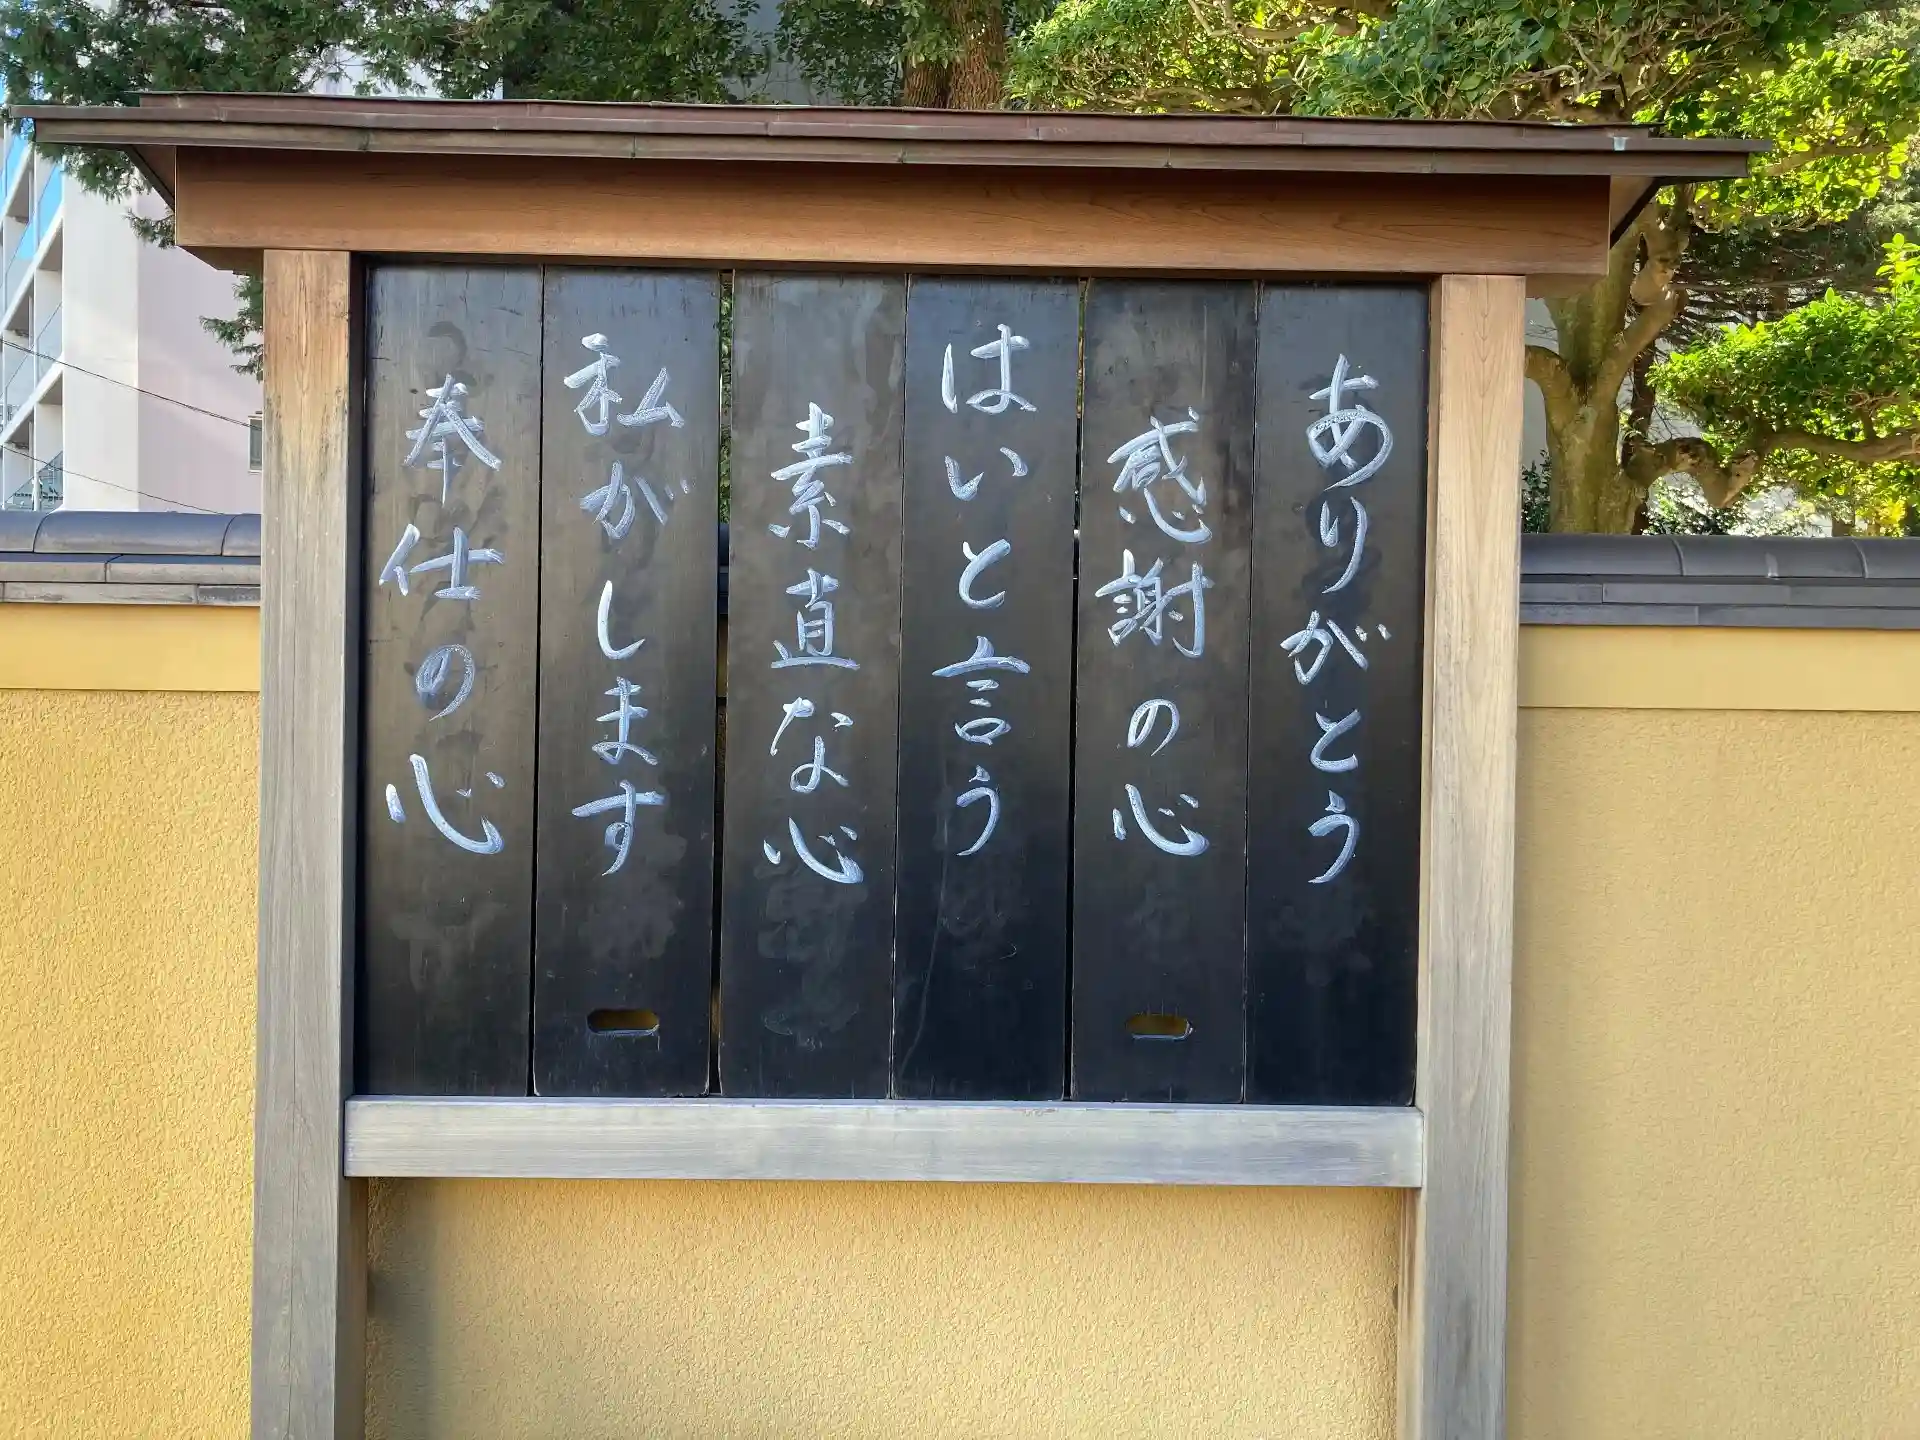 ありがとう
感謝の心
はいと言う
素直な心
私がします
奉仕の心